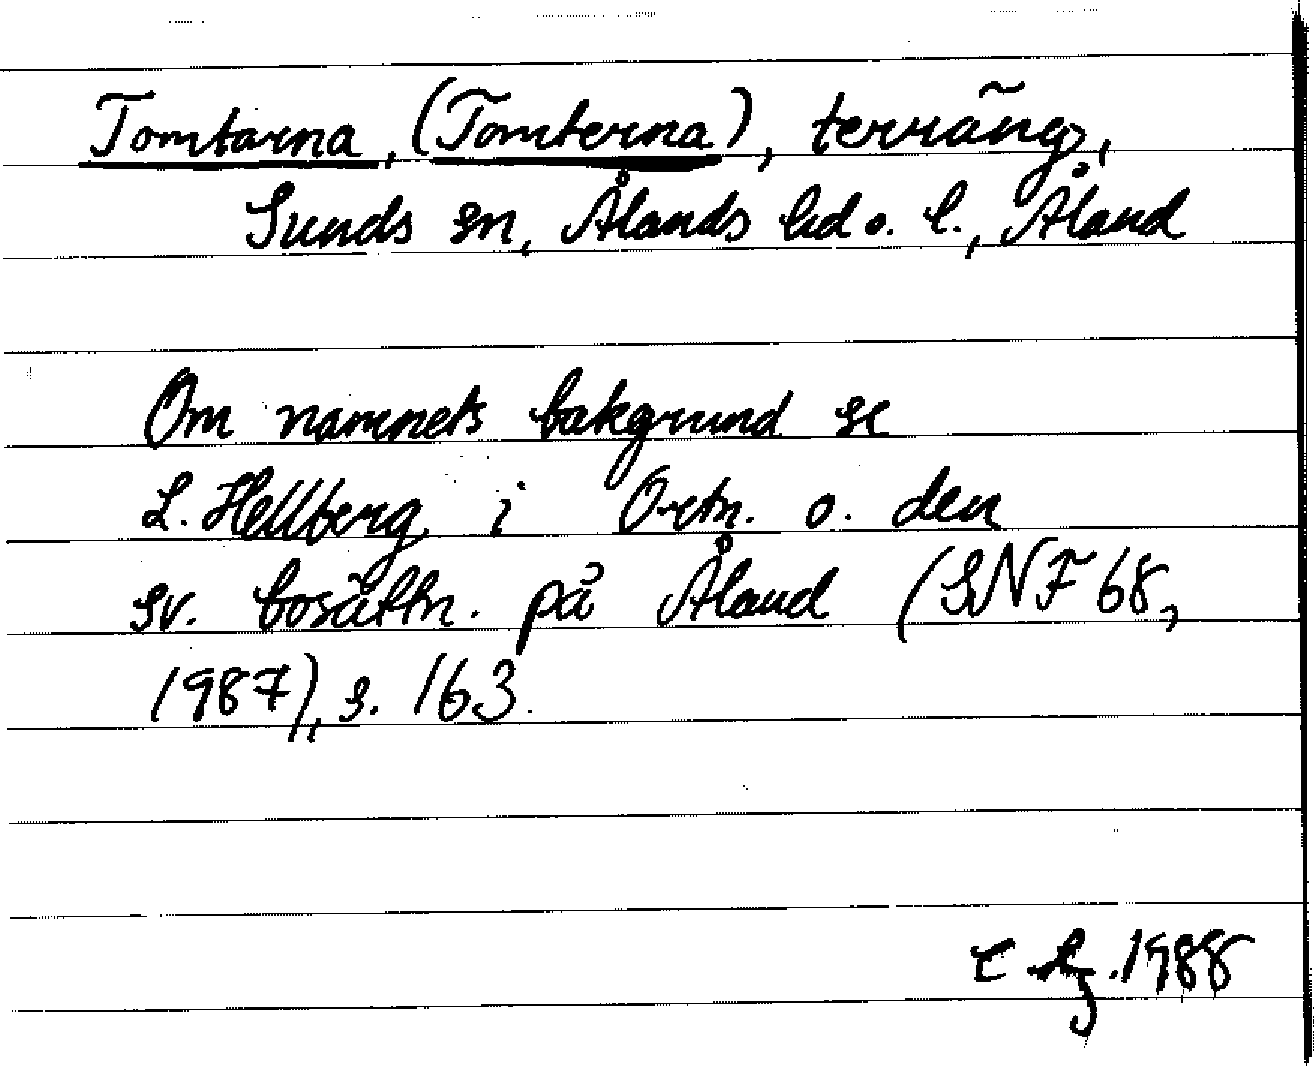 Tomtarna, (Tomterna), terräng,
Sunds sn, Ålands hd o. l., Åland
Om namnets bakgrund se
L. Hellberg i Ortn. o. den
sv. bosättn. på Åland (SNF 68,
1987), s. 163.
1988